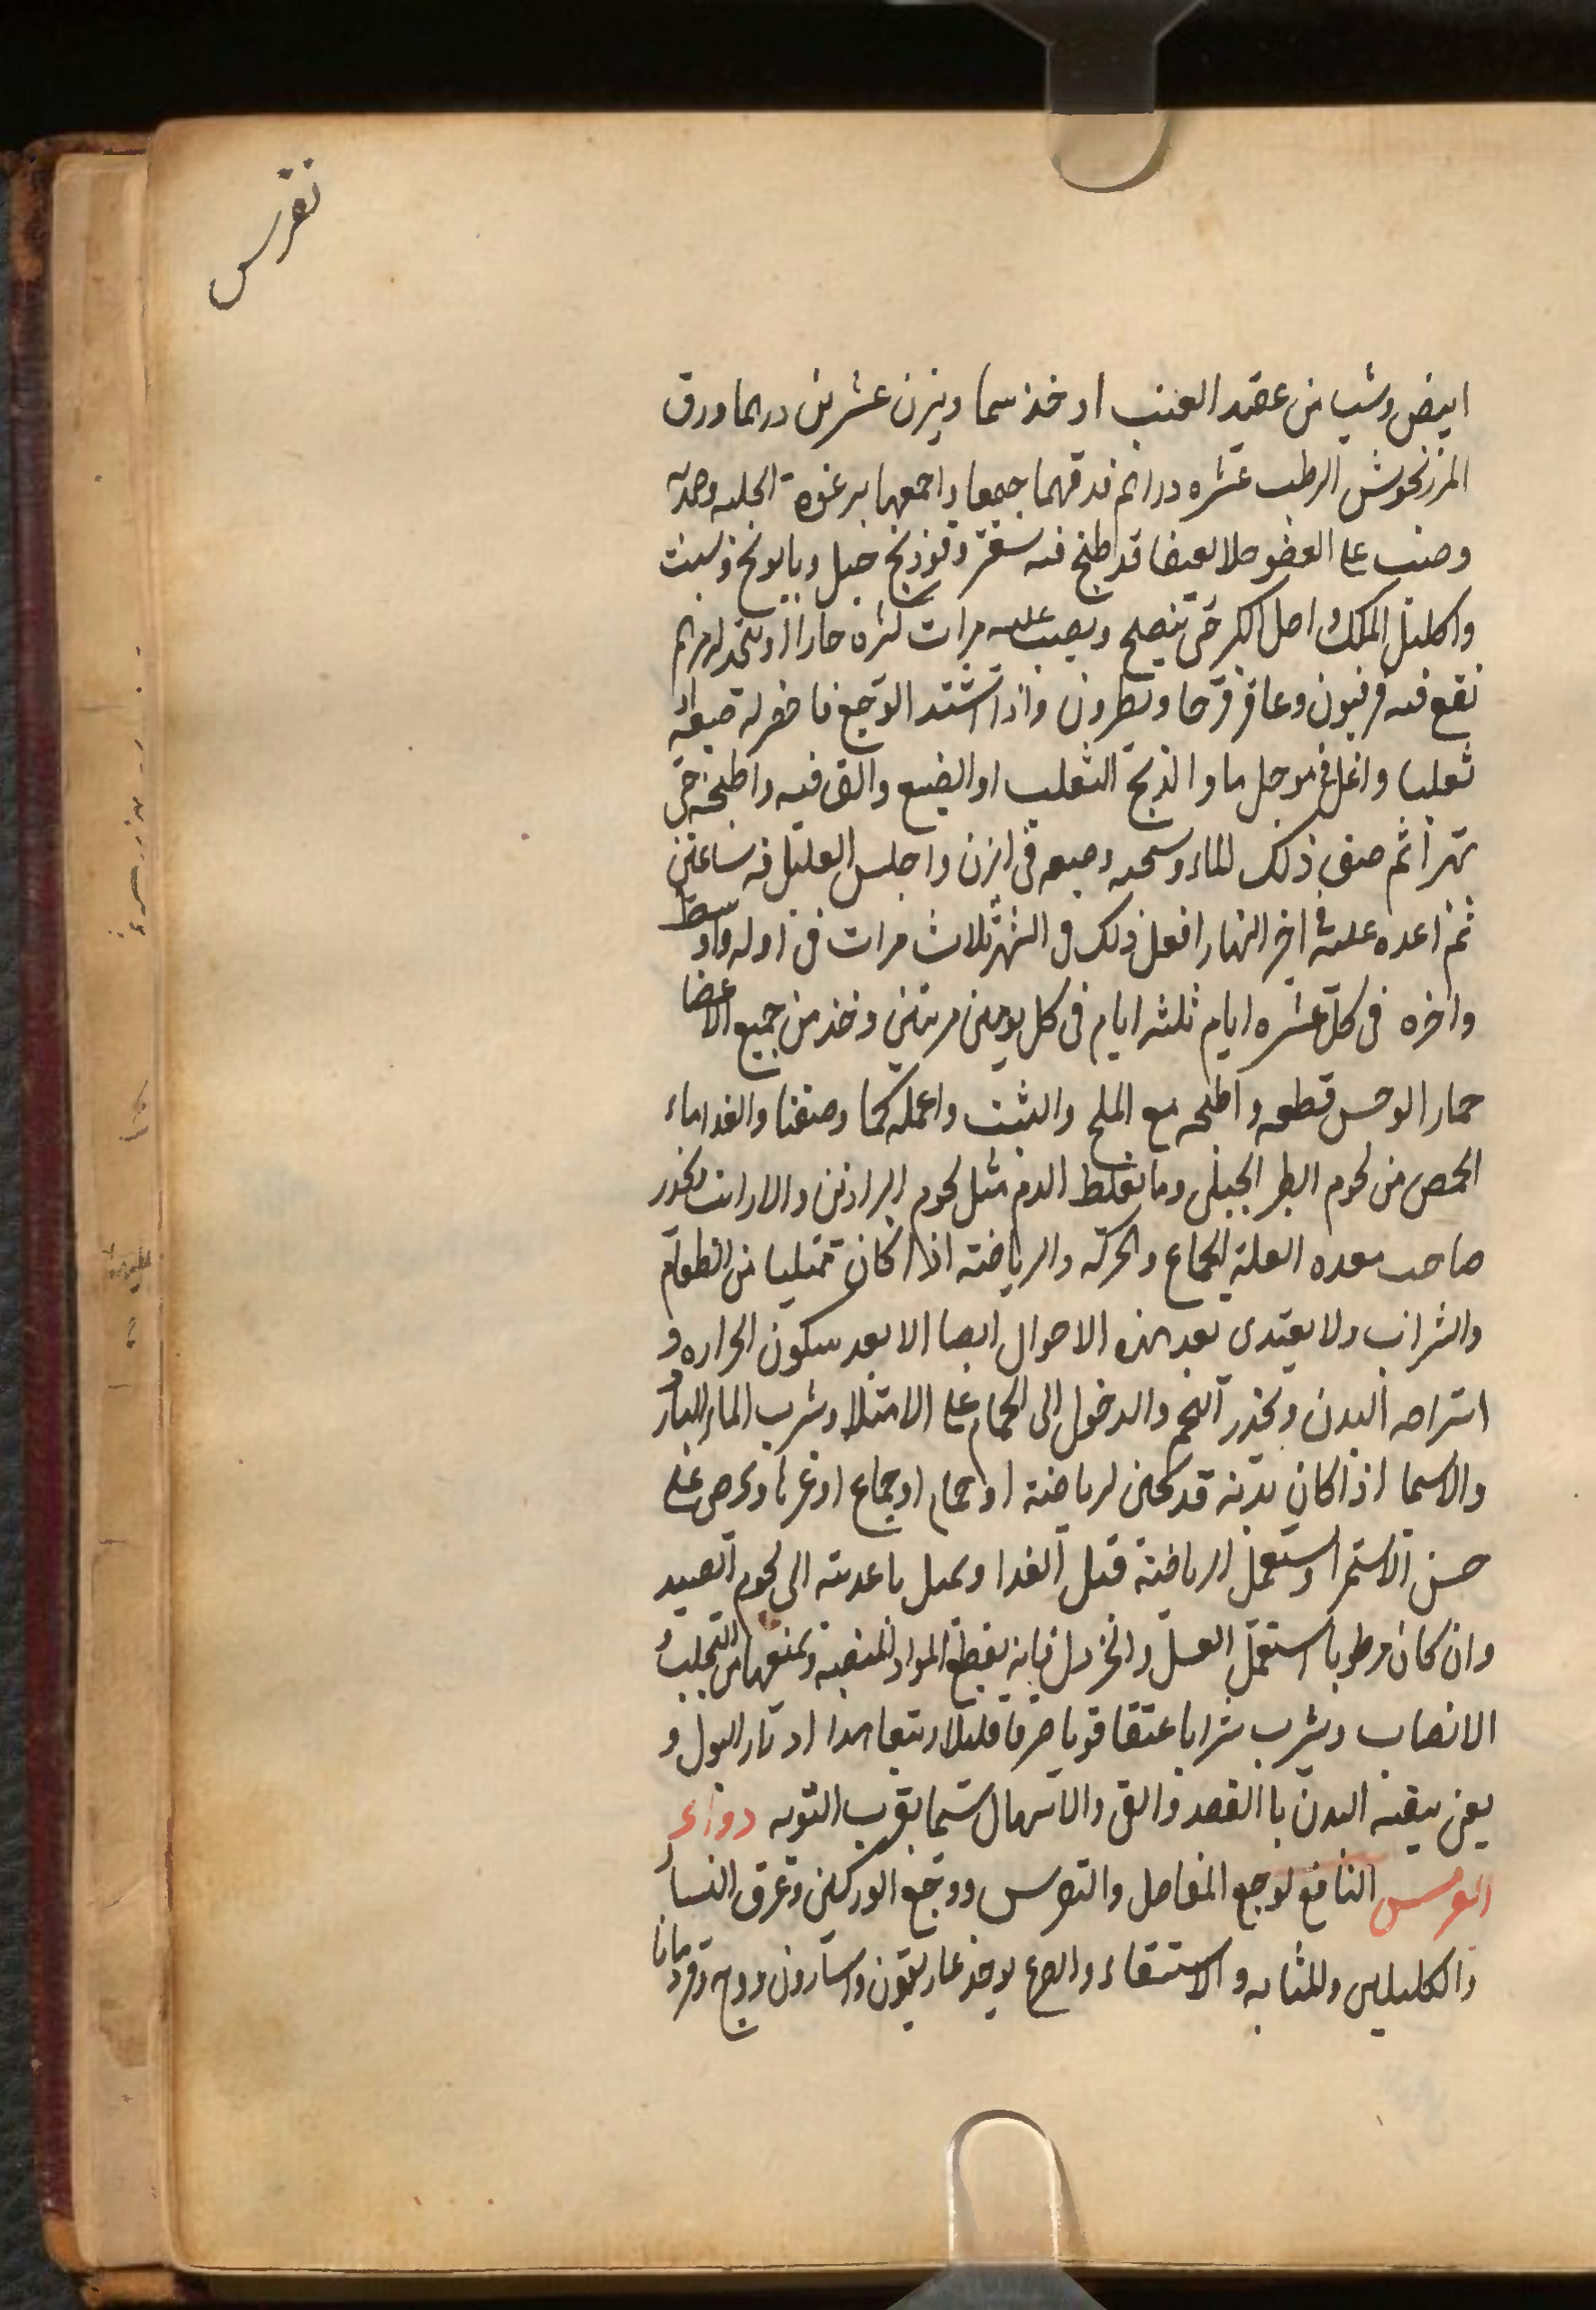 نقرس
ابيض وشب من عقيد العنب او خذ سما ويزن عشرين درهما ورق
المرزنجوش الرطب عشره دراهم فدقهما جميعا واجمعها برغوة الحلبه وضمد به
وصب على العضو خلا ثقيفا قد اطبخ فيه سعتر وفوذنج جبلي وبابونج وشبت
واكليل الملك واصل الكبر حتى ينضج ويصب عليه مرات كثره حارا او تتخذ له مرهم
تقع فيه فربيون وعاقر قرحا ونطرون واذا اشتد الوجع فاحضر له ضبعة او
ثعلبا واغل في مرجل ما واذبح الثعلب او الضبع والق فيه واطبخه حتى
تهرا ثم صف ذلك الماء وسخنه وضعه في ابزن واجلس العليل فيه ساعتين
ثم اعده عليه في اخر النهار افعل ذلك في الشهر ثلاث مرات في اوله واوسط
واخره في كل عشره ايام ثلثه ايام في كل يومين مرتين وخذ من جميع الاعضا
حمار الوحش قطعه واطبخه مع الملح والشبت واعمله كما وصفنا والغدا ماء
الحمص من لحوم الطير الجبلي وما يغلظ الدم مثل لحوم البراذين والارانب ويحذر
صاحب هذه العلة الجماع والحركه والرياضة اذا كان ممتليا من الطعام
والشراب ولا يغتدى بعد هذه الاحوال ايضا الا بعد سكون الحراره و
استراحه البدن ويحذر التخم والدخول الى الحمام على الامتلا وشرب الماء البارد
والاسما اذا كان بدنه قد سخن لرياضة او حمام او جماع او غيرها ويحرص على
حسن الاستمرا ويستعمل الرياضة قبل الغدا ويميل باغديته الى لحوم الصيد
وان كان مرطوبا استعمل العسل والخردل فانه يقطع المواد المنصبه ويمنعها من التحلب و
الانصاب ويشرب شرابا عتيقا قويا صرفا قليلا ويتعاهد ادرار البول و
يعنى بتنقيه البدن باالفصد والقى والاسهال سيما بقرب النوبه دواء
النقرس النافع لوجع المفاصل والنقرس ووجع الوركين وعرق النسا و
والكليتين وللمثانه والاستسقاء والصرع يوخذ غاريقون واسارون ووج وقردمانا